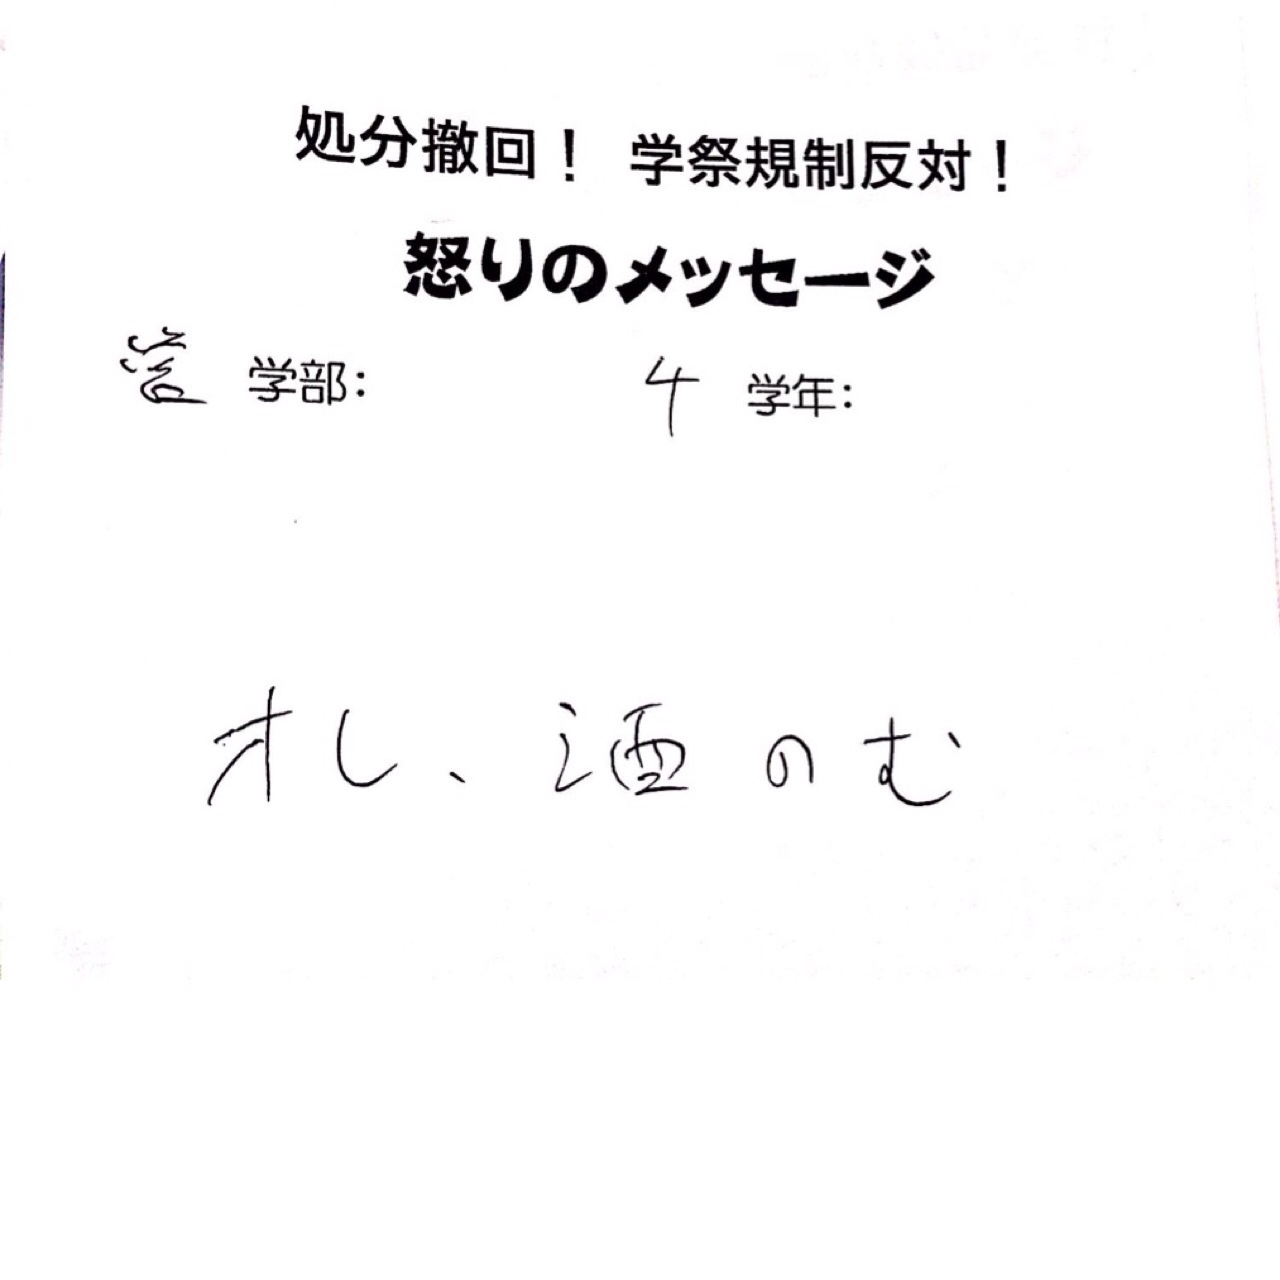 処分撤回！ 学祭規制反対！
怒りのメッセージ
学部: 4 学年:
オレ、酒のむ